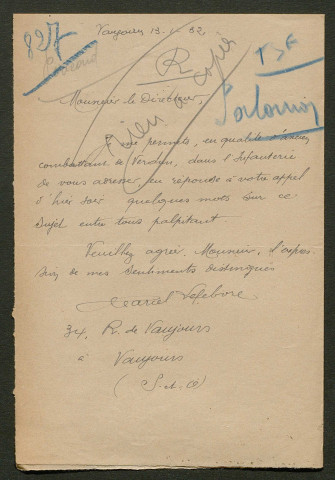 827
Vaujours 13-1-32
R
Monsieur le Directeur,
rien au copié
Je me permets, en qualité d'ancien
combattant de Verdun, dans l'Infanterie
de vous adresser en réponse à votre appel
d'hier soir quelques mots sur ce
sujet entre tous palpitant.
Veuillez agréer, Monsieur, l'expres
sion de mes sentiments distingués
Marcel Lefebvre
34, R. de Vaujours
à Vaujours
(S. et O)